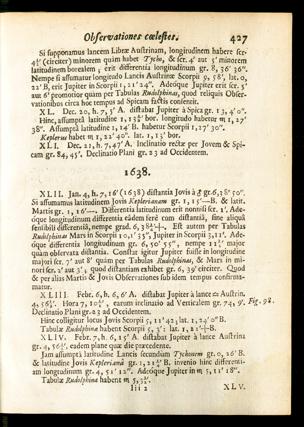 Observationes cœlestes. 427
Si supponamus lancem Libræ Austrinam, longitudinem habere scr.
4½' (circiter) minorem quàm habet Tycho, & scr. 4' aut 5' minorem
latitudinem borealem; erit differentia longitudinum gr. 8, 56' 56".
Nempe si assumatur longitudo Lancis Austrinæ Scorpii 9, 58', lat. 0,
22' B, erit Jupiter in Scorpii 1, 21' 24". Adeóque Jupiter erit scr. 5'
aut 6' promotior quàm per Tabulas Rudolphinas, quod reliquis Obser-
vationibus circa hoc tempus ad Spicam factis consentit.
XL. Dec. 20, h. 7, 5' A. distabat Jupiter à Spica gr. 13, 4' 0".
Hinc, assumptâ latitudine 1, bor. longitudo habetur ♏ 1, 27'
38". Assumptâ latitudine 1, 14' B. habetur Scorpii 1, 27' 30".
Keplerus habet ♏ 1, 22' 40". lat. 1, 13' bor.
XLI. Dec. 21, h. 7, 47' A. Inclinatio rectæ per Jovem & Spi-
cam gr. 84, 45'. Declinatio Plani gr. 23 ad Occidentem.
1638.
XLII. Jan. 4, h. 7, 16' (1638) distantia Jovis à ♂ gr. 6, 38' 50".
Si assumamus latitudinem Jovis Keplerianam gr. 1, 15'—B. & latit.
Martis gr. 1, 16'—. Differentia latitudinum erit nonnisi scr. 1'. Ade-
óque longitudinum differentia eâdem ferè cum distantiâ, sine aliquâ
sensibili differentiâ, nempe grad. 6, Est autem per Tabulas
Rudolphinas Mars in Scorpii 10, 1' 55", Jupiter in Scorpii 3, 11'. Ade-
óque differentia longitudinum gr. 6, 50' 55", nempe major
quàm observata distantia. Constat igitur Jupiter fuisse in longitudine
majori scr. 7' aut 8' quàm per Tabulas Rudolphinas, & Mars in mi-
nori scr. 2' aut 3'; quod distantiam exhibet gr. 6, 39' circiter. Quod
& per alias Martis & Jovis Observationes sub idem tempus confirma-
matur.
XLIII. Febr. 6, h. 6, 6' A. distabat Jupiter à lance Austrin.
4, Hora 7, earum inclinatio ad Verticalem gr. 74, 9'. Fig. 98.
Declinatio Plani gr. 23 ad Occidentem.
Hinc colligitur locus Jovis Scorpii 5, 11' 42; lat. 1, 24' 0" B.
Tabulæ Rudolphinæ habent Scorpii 5, 3': lat. 1, 21'—B.
XLIV. Febr. 7, h. 6, 15' A. distabat Jupiter à lance Austrina
gr. 4, eadem plane quæ die præcedente.
Jam assumptâ latitudine Lancis secundum Tychonem gr. 0, 26' B.
& latitudine Jovis Kepleriana gr. 1, B. invenio hinc differenti-
am longitudinum gr. 4, 51' 12". Adeóque Jupiter in ♏ 5, 11' 18".
Tabulæ Rudolphinæ habent ♏ 5,
Iii 2 XLV.